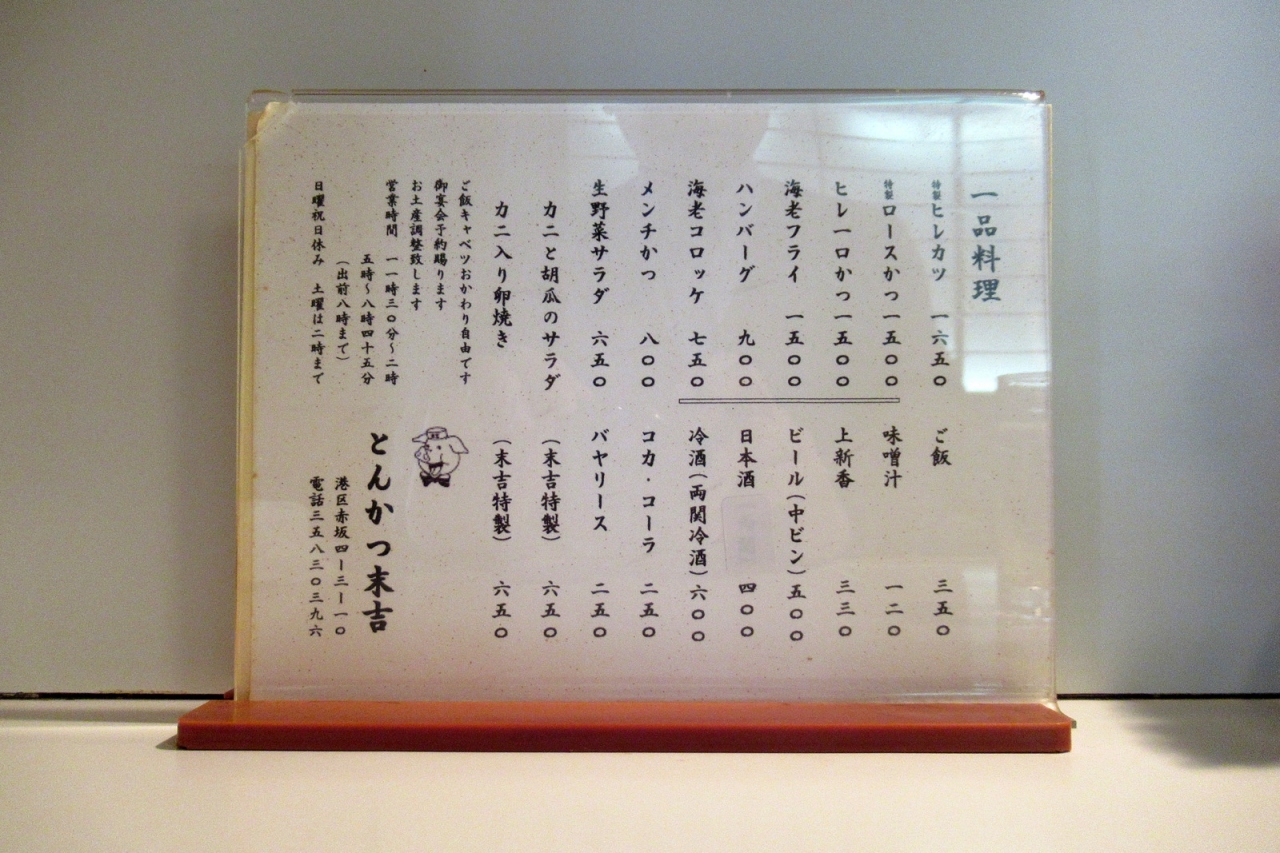 一品料理
特製ヒレカツ 一六五〇
特製ロースかつ 一五〇〇
ヒレ一口かつ 一五〇〇
海老フライ 一五〇〇
ハンバーグ 九〇〇
海老コロッケ 七五〇
メンチかつ 八〇〇
生野菜サラダ 六五〇
カニと胡瓜のサラダ(末吉特製) 六五〇
カニ入り卵焼き(末吉特製) 六五〇
ご飯 三五〇
味噌汁 一二〇
上新香 三三〇
ビール(中ビン) 五〇〇
日本酒 四〇〇
冷酒(両関冷酒) 六〇〇
コカ・コーラ 二五〇
バヤリース 二五〇
ご飯キャベツおかわり自由です
御宴会予約賜ります
お土産調整致します
営業時間 一一時三〇分〜二時
五時〜八時四十五分
(出前八時まで)
日曜祝日休み 土曜は二時まで
とんかつ末吉
港区赤坂四ー三ー一〇
電話三五八三〇三九六